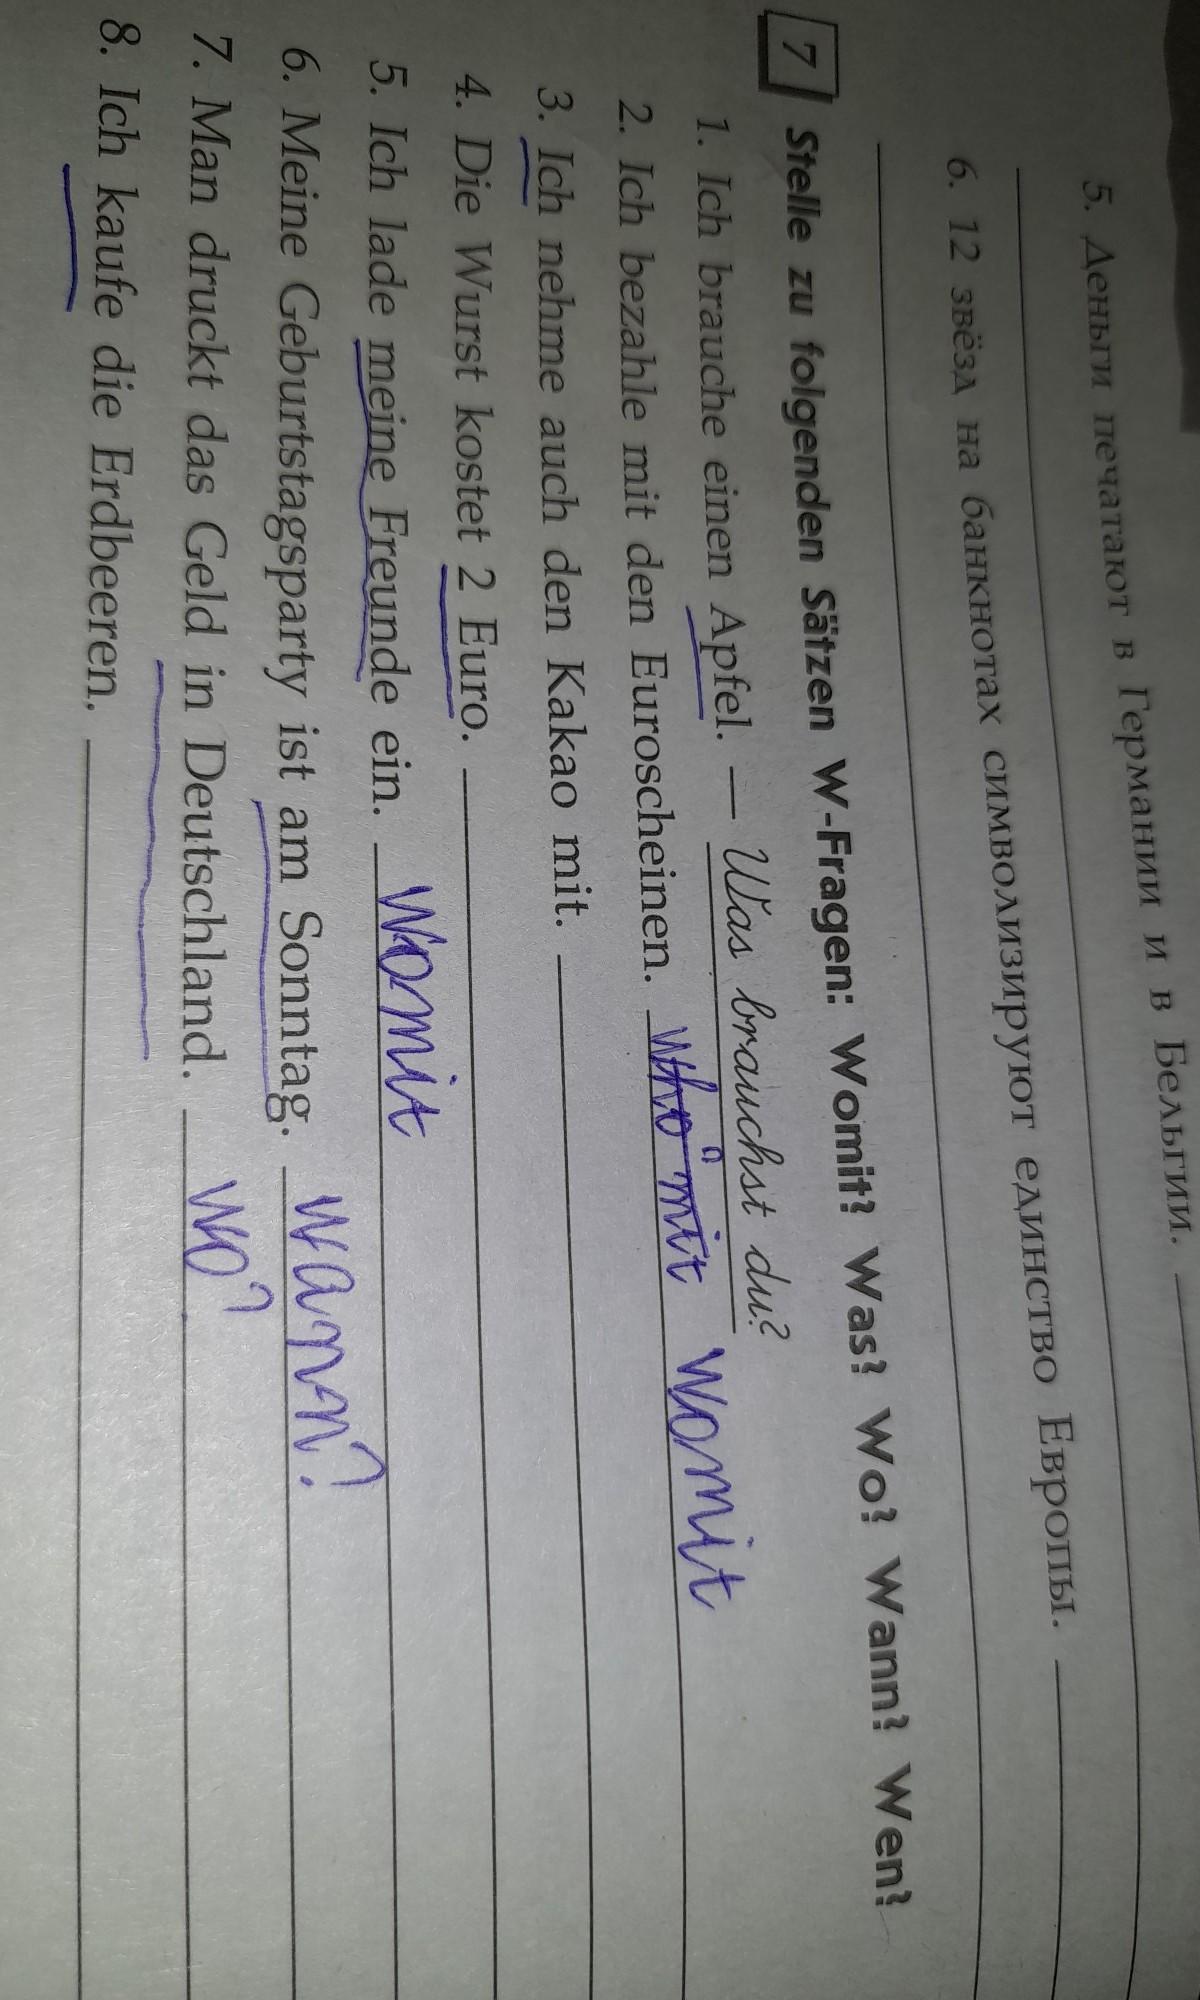 5. Деньги печатают в Германии и в Бельгии.
6. 12 звёзд на банкнотах символизируют единство Европы.
7 Stelle zu folgenden Sätzen W-Fragen: Womit? Was? Wo? Wann? Wen?
1. Ich brauche einen Apfel. — Was brauchst du?
2. Ich bezahle mit den Euroscheinen. womit
3. Ich nehme auch den Kakao mit.
4. Die Wurst kostet 2 Euro.
5. Ich lade meine Freunde ein. womit
6. Meine Geburtstagsparty ist am Sonntag. wann?
7. Man druckt das Geld in Deutschland. wo?
8. Ich kaufe die Erdbeeren.